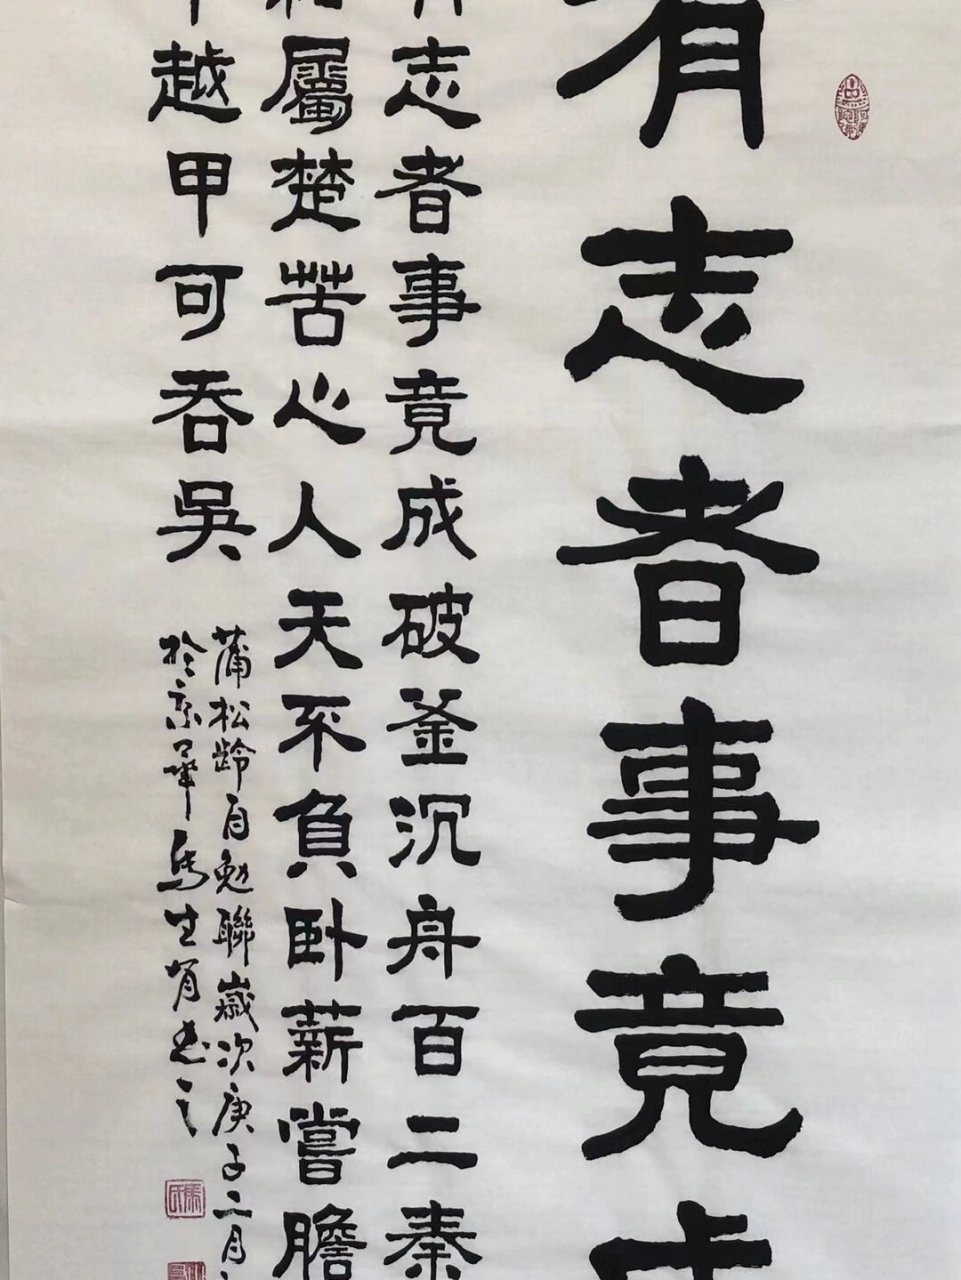 有志者事竟成
有志者事竟成破釜沉舟百二秦
終屬楚苦心人天不負卧薪嘗膽
千越甲可吞吳
蒲松龄自勉聯歲次庚子二月
於京華馬生育書之